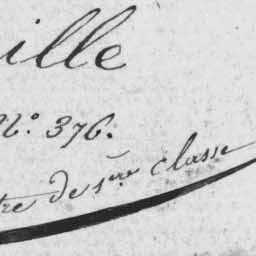 ille
N.º 376.
tre de 1ère classe